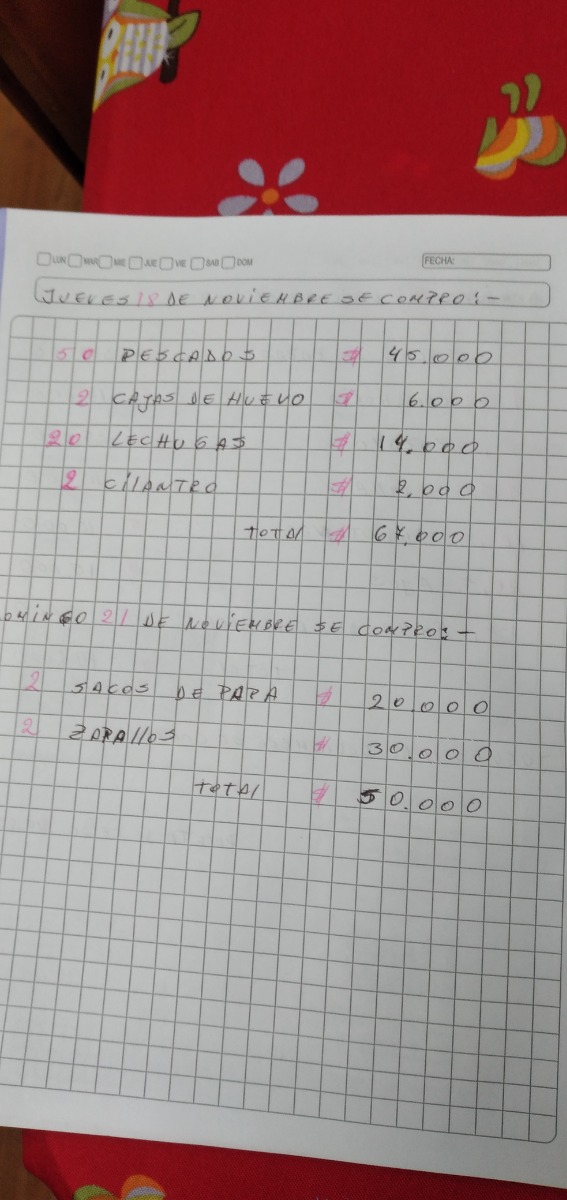 LUN MAR MIE JUE VIE SAB DOM FECHA:
JUEVES 18 DE NOVIEMBRE SE COMPRO:-
50 PESCADOS $ 45.000
2 CAJAS DE HUEVO $ 6.000
20 LECHUGAS $ 14.000
2 CILANTRO $ 2.000
TOTAL $ 67.000
OMINGO 21 DE NOVIEMBRE SE COMPRO:-
2 SACOS DE PAPA $ 20.000
2 ZAPALLOS $ 30.000
TOTAL $ 50.000